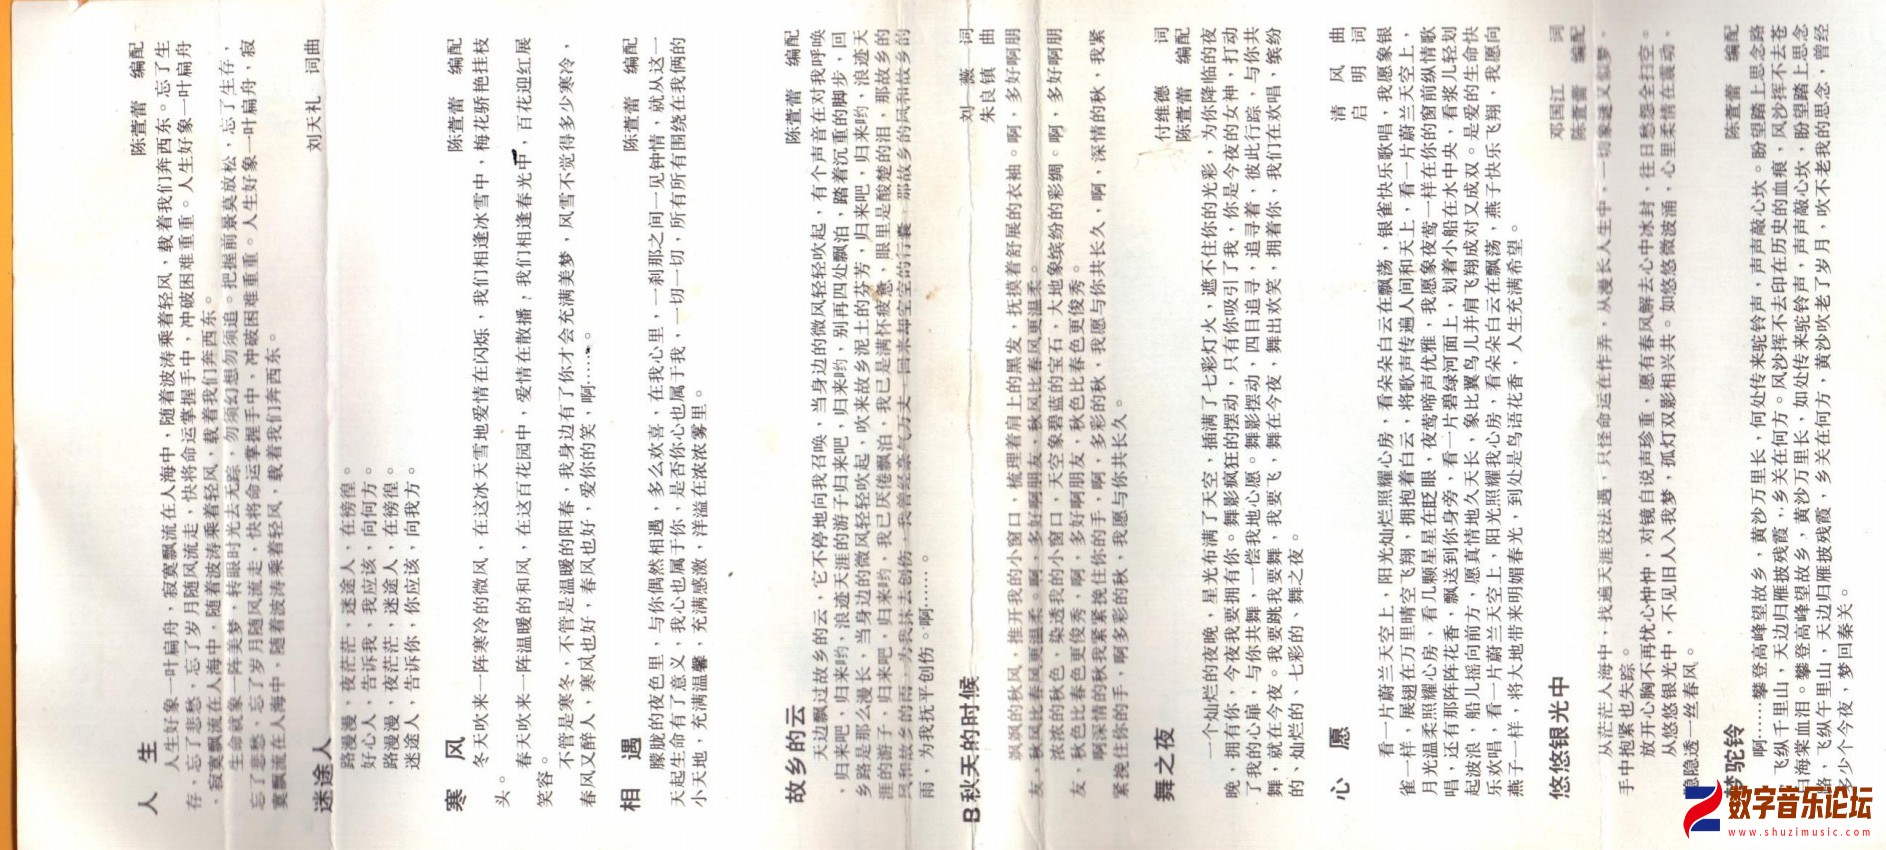 人 生
陈萱蕾 编配
人生好象一叶扁舟，寂寞飘流在人海中，随着波涛乘着轻风，载着我们奔西东。忘了生
存，忘了悲愁，忘了岁月随风流走，快将命运掌握手中，冲破困难重重。人生好象一叶扁舟
，寂寞飘流在人海中，随着波涛乘着轻风，载着我们奔西东。
生命就象一阵美梦，转眼时光去无踪，勿须幻想勿须追。把握前景莫放松，忘了生存，
忘了悲愁，忘了岁月随风流走，快将命运掌握手中，冲破困难重重。人生好象一叶扁舟，寂
寞飘流在人海中，随着波涛乘着轻风，载着我们奔西东。
迷途人
刘天礼 词曲
路漫漫，夜茫茫，迷途人，在徬徨。
好心人，告诉我，我应该，向何方。
路漫漫，夜茫茫，迷途人，在徬徨。
迷途人，告诉你，你应该，向我方。
寒 风
陈萱蕾 编配
冬天吹来一阵寒冷的微风，在这冰天雪地爱情在闪烁，我们相逢冰雪中，梅花骄艳挂枝
头。
春天吹来一阵温暖的和风，在这百花园中，爱情在散播，我们相逢春光中，百花迎红展
笑容。
不管是寒冬，不管是温暖的阳春，我身边有了你才会充满美梦，风雪不觉得多少寒冷，
春风又醉人，寒风也好，春风也好，爱你的笑，啊……。
相 遇
陈萱蕾 编配
朦胧的夜色里，与你偶然相遇，多么欢喜，在我心里，一刹那之间一见钟情，就从这一
天起生命有了意义，我心也属于你，是否你心也属于我，一切一切，所有所有围绕在我俩的
小天地，充满温馨，充满感激，洋溢在浓浓雾里。
故乡的云
陈萱蕾 编配
天边飘过故乡的云，它不停地向我召唤，当身边的微风轻轻吹起，有个声音在对我呼唤
，归来吧，归来哟，浪迹天涯的游子归来吧，归来哟，别再四处飘泊，踏着沉重的脚步，回
乡路是那么漫长，当身边的微风轻轻吹起，吹来故乡泥土的芬芳，归来吧，归来哟，浪迹天
涯的游子，归来吧，归来哟，我已厌倦飘泊，我已是满怀疲惫，眼里是酸楚的泪，那故乡的
风和故乡的雨，为我抹去创伤，我曾经豪气万丈，回来却空空的行囊，那故乡的风和故乡的
雨，为我抚平创伤。啊……。
B秋天的时候
刘 薇 词
朱良镇 曲
飒飒的秋风，推开我的小窗口，梳理着肩上的黑发，抚摸着舒展的衣袖。啊，多好啊朋
友，秋风比春风更温柔。啊，多好啊朋友，秋风比春风更温柔。
浓浓的秋色，染透我的小窗口，天空象碧蓝的宝石，大地象缤纷的彩绸。啊，多好啊朋
友，秋色比春色更俊秀，啊，多好啊朋友，秋色比春色更俊秀。
啊深情的秋我紧紧挽住你的手，啊，多彩的秋，我愿与你共长久，啊，深情的秋，我紧
紧挽住你的手，啊多彩的秋，我愿与你共长久。
舞之夜
付维德 词
陈萱蕾 编配
一个灿烂的夜晚，星光布满了天空，插满了七彩灯火，遮不住你的光彩，为你降临的夜
晚，拥有你，今夜我要拥有你。舞影疯狂的摆动，只有你吸引了我，你是今夜的女神，打动
了我的心扉，与你共舞，一偿我地心愿。舞影摆动，四目追寻，追寻着，彼此行踪，与你共
舞，就在今夜。我要跳我要舞，我要飞，舞在今夜，舞出欢笑，拥着你，我们在欢唱，缤纷
的、灿烂的、七彩的、舞之夜。
心 愿
清 风 曲
启 明 词
看一片蔚兰天空上，阳光灿烂照耀心房，看朵朵白云在飘荡，银雀快乐歌唱，我愿象银
雀一样，展翅在万里晴空飞翔，拥抱着白云，将歌声传遍人间和天上，看一片蔚兰天空上，
月光温柔照耀心房，看几颗星星在眨眼，夜莺啼声优雅，我愿象夜莺一样在你的窗前纵情歌
唱，还有那阵阵花香，飘送到你身旁，看一片碧绿河面上，划着小船在水中央，看浆儿轻划
起波浪，船儿摇向前方，愿真情地久天长，象比翼鸟儿并肩飞翔成对又成双。是爱的生命快
乐欢唱，看一片蔚兰天空上，阳光照耀我心房，看朵朵白云在飘荡，燕子快乐飞翔，我愿向
燕子一样，将大地带来明媚春光，到处是鸟语花香，人生充满希望。
悠悠银光中
邓国江 词
陈萱蕾 编配
从茫茫人海中，找遍天涯没法遇，只怪命运在作弄，从漫长人生中，一切象谜又似梦。
手中抱紧也失踪。
放开心胸不再忧心忡忡，对镜自说声珍重，愿有春风解去心中冰封，往日愁怨全扫空。
从悠悠银光中，不见旧人入我梦，孤灯双影相兴共。如悠悠微波涌，心里柔情在震动。
隐隐透一丝春风。
梦驼铃
陈萱蕾 编配
啊……攀登高峰望故乡，黄沙万里长，何处传来驼铃声，声声敲心坎。盼望踏上思念路
飞纵千里山，天边归雁披残霞，乡关在何方。风沙挥不去印在历史的血痕，风沙挥不去苍
白海棠血泪。攀登高峰望故乡，黄沙万里长，如处传来驼铃声，声声敲心坎，盼望踏上思念
路，飞纵午里山，天边归雁披残霞，乡关在何方，黄沙吹老了岁月，吹不老我的思念，曾经
多少个今夜，梦回秦关。
数字音乐论坛
www.shuzimusic.com